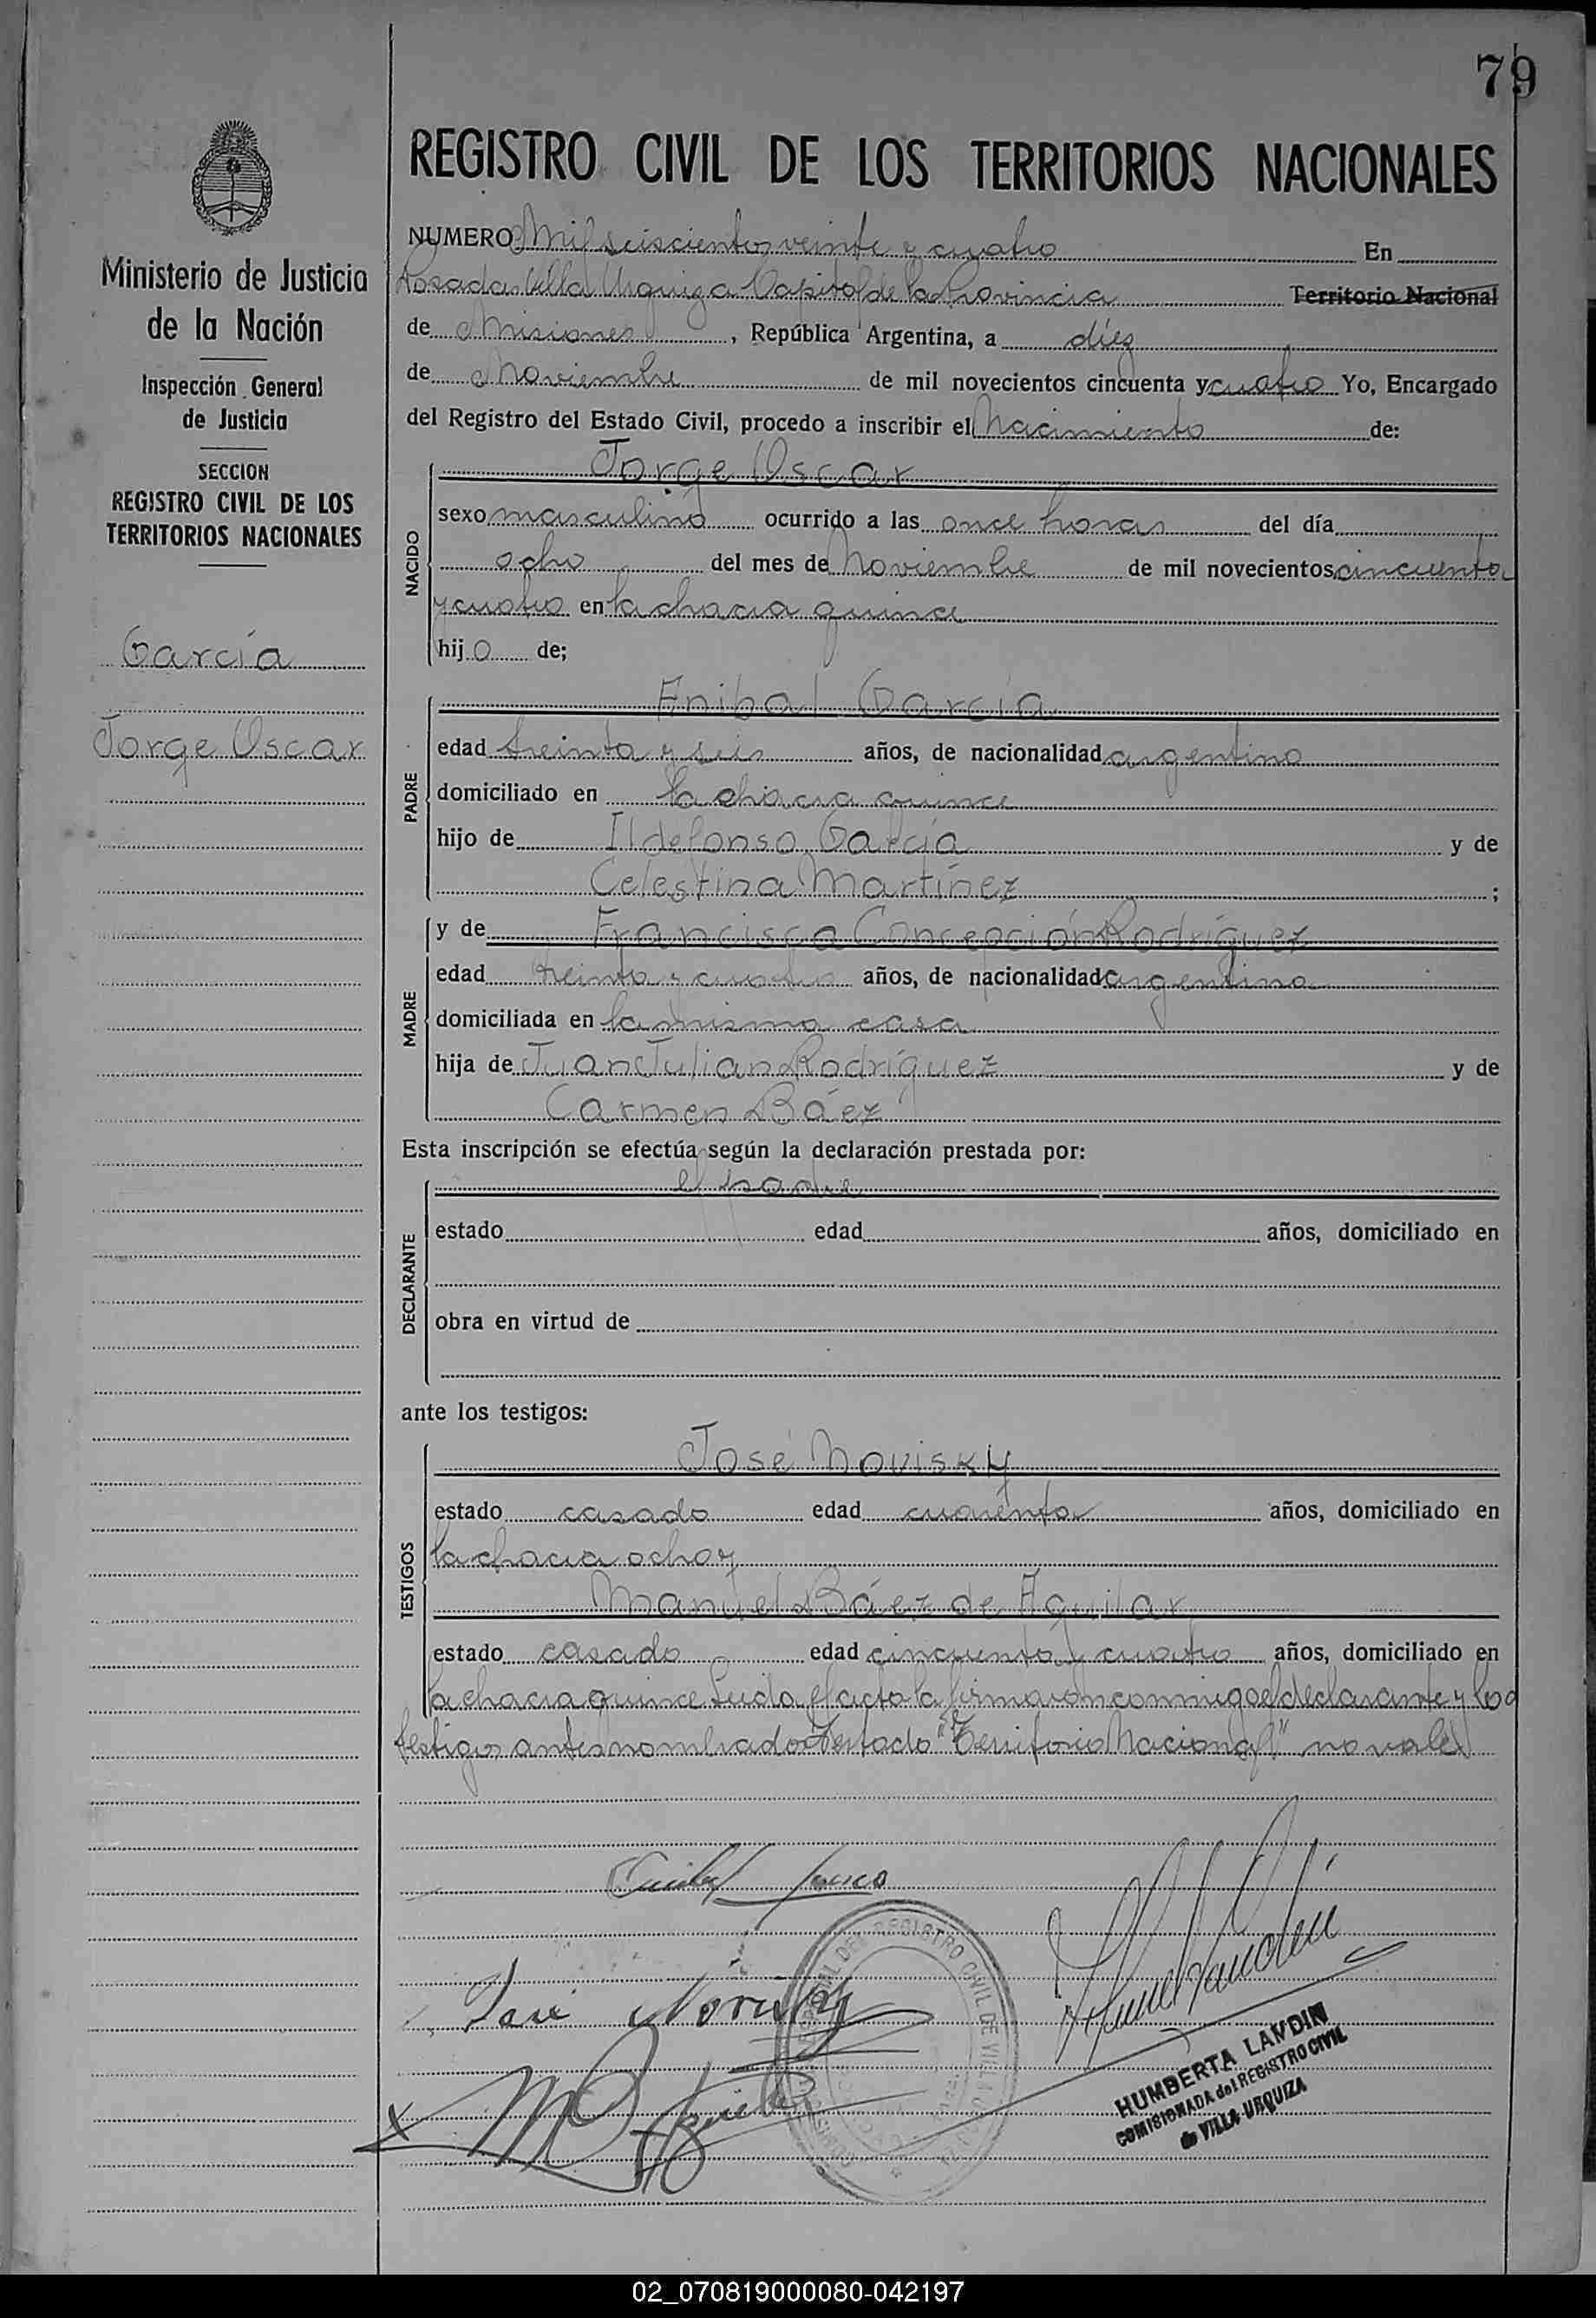 79
REGISTRO CIVIL DE LOS TERRITORIOS NACIONALES
Ministerio de Justicia
de la Nación
Inspección General
de Justicia
SECCION
REGISTRO CIVIL DE LOS
TERRITORIOS NACIONALES
García
Jorge Oscar
NUMERO Mil seiscientos veinte y cuatro En
Posadas Villa Urquiza Capital de la Provincia Territorio Nacional
de Misiones, República Argentina, a diez
de Noviembre de mil novecientos cincuenta y cuatro Yo, Encargado
del Registro del Estado Civil, procedo a inscribir el Nacimiento de:
Jorge Oscar
NACIDO
sexo masculino ocurrido a las once horas del día
ocho del mes de Noviembre de mil novecientos cincuenta
y cuatro en la chacra quince
hijo de;
Anibal García
PADRE
edad treinta y seis años, de nacionalidad argentino
domiciliado en la chacra quince
hijo de Ildefonso García y de
Celestina Martínez ;
y de Francisca Concepción Rodríguez
MADRE
edad treinta y cuatro años, de nacionalidad argentina
domiciliada en la misma casa
hija de Juan Julian Rodríguez y de
Carmen Báez
Esta inscripción se efectúa según la declaración prestada por:
el padre
DECLARANTE
estado edad años, domiciliado en
obra en virtud de
ante los testigos:
José Novisky
TESTIGOS
estado casado edad cuarenta años, domiciliado en
la chacra ocho y
Manuel Báez de Aguilar
estado casado edad cincuenta y cuatro años, domiciliado en
la chacra quince Leida el acta la firmaron conmigo el declarante y los
testigos antes nombrados Testado "Territorio Nacional" no vale
José Novisky
DEL REGISTRO CIVIL DE VILLA URQUIZA
HUMBERTA LANDIN
COMISIONADA del REGISTRO CIVIL
de VILLA URQUIZA
02_070819000080-042197